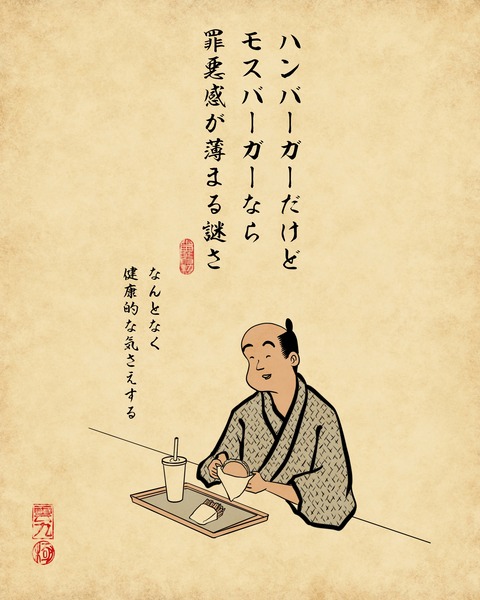 ハンバーガーだけど
モスバーガーなら
罪悪感が薄まる謎さ
なんとなく
健康的な気さえする